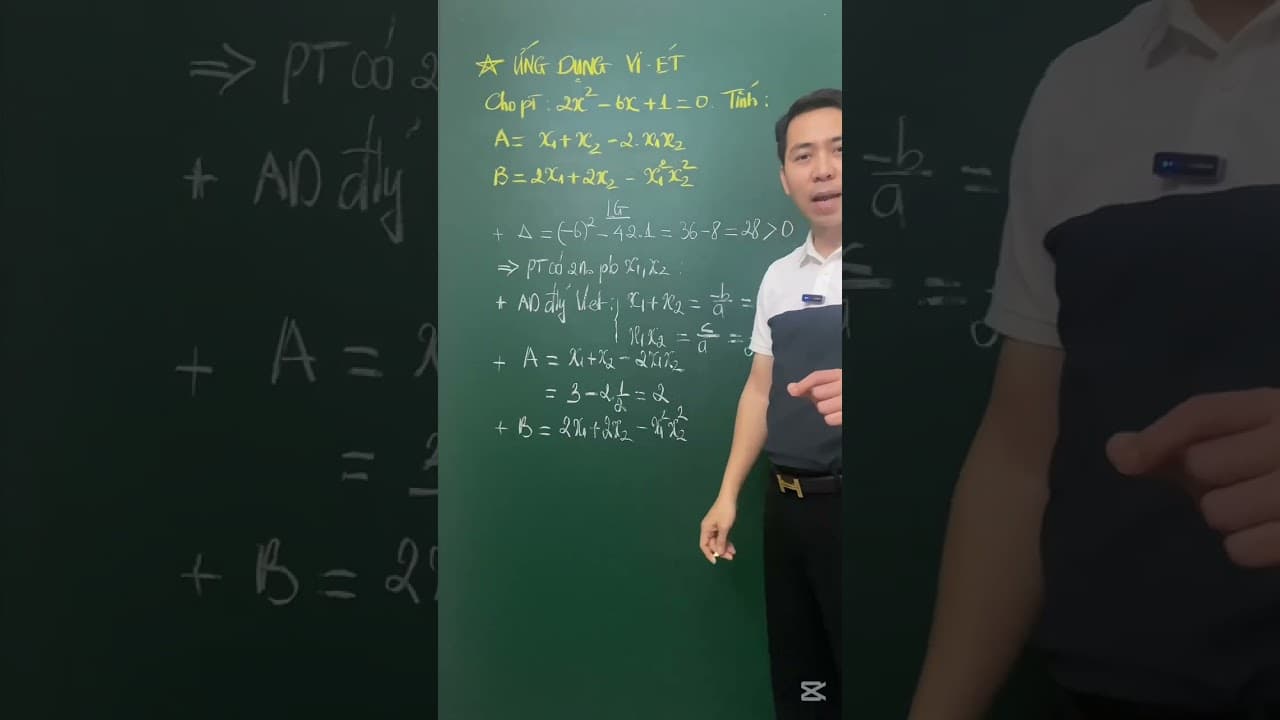 ☆ ỨNG DỤNG VI-ÉT
Cho pt: 2x² - 6x + 1 = 0. Tính:
A = x₁ + x₂ - 2.x₁x₂
B = 2x₁ + 2x₂ - x₁²x₂²
LG
+ Δ = (-6)² - 4.2.1 = 36 - 8 = 28 > 0
⇒ PT có 2n₀ pb x₁, x₂ :
+ AD đlý Viet: { x₁ + x₂ = -b/a =
x₁x₂ = c/a =
+ A = x₁ + x₂ - 2x₁x₂
= 3 - 2.1/2 = 2
+ B = 2x₁ + 2x₂ - x₁²x₂²